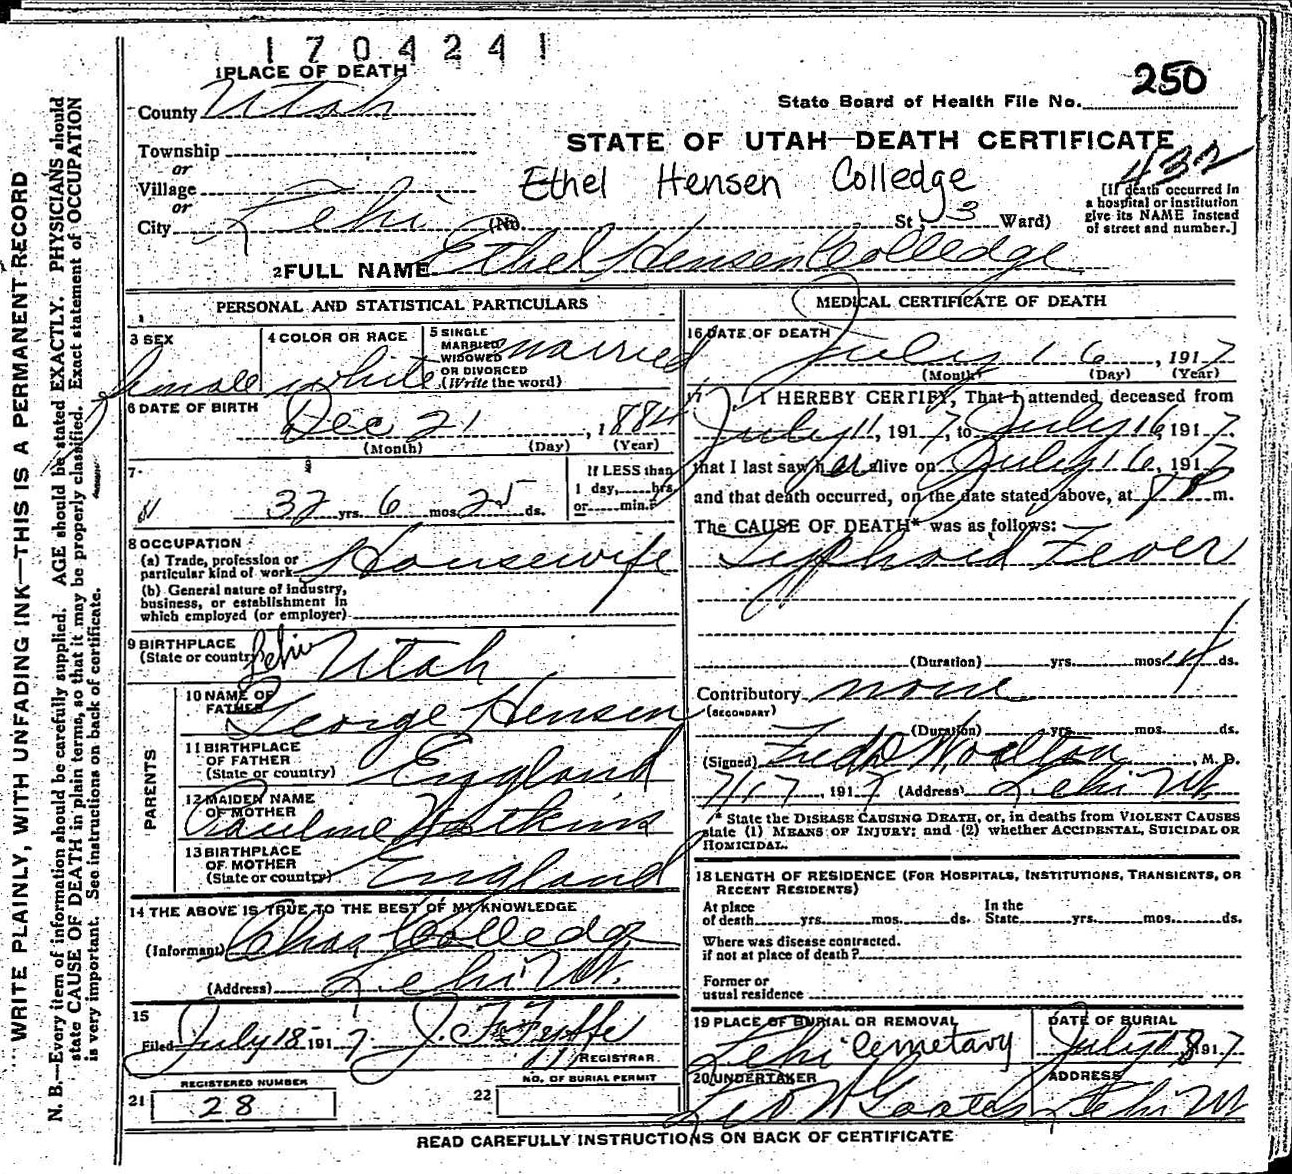 1704241
1 PLACE OF DEATH
250
County Utah
State Board of Health File No.
STATE OF UTAH—DEATH CERTIFICATE
Township
432
or
Ethel Hensen Colledge
Village
or
City Lehi (No. St., 3 Ward)
[If death occurred in
a hospital or institution
give its NAME instead
of street and number.]
2 FULL NAME Ethel Hensen Colledge
PERSONAL AND STATISTICAL PARTICULARS
3 SEX
female
4 COLOR OR RACE
white
5 SINGLE
MARRIED
WIDOWED
OR DIVORCED
(Write the word)
married
6 DATE OF BIRTH
Dec 21, 1884
(Month) (Day) (Year)
7
32 yrs. 6 mos. 25 ds.
If LESS than
1 day,......hrs.
or......min.?
8 OCCUPATION
(a) Trade, profession or
particular kind of work Housewife
(b) General nature of industry,
business, or establishment in
which employed (or employer)
9 BIRTHPLACE
(State or country) Lehi Utah
PARENTS
10 NAME OF
FATHER George Hensen
11 BIRTHPLACE
OF FATHER
(State or country) England
12 MAIDEN NAME
OF MOTHER Pauline Watkins
13 BIRTHPLACE
OF MOTHER
(State or country) England
14 THE ABOVE IS TRUE TO THE BEST OF MY KNOWLEDGE
(Informant) Chas Colledge
(Address) Lehi Ut.
15
Filed July 18 1917 J. F. Fyffe
REGISTRAR.
REGISTERED NUMBER
21 28
NO. OF BURIAL PERMIT
22
MEDICAL CERTIFICATE OF DEATH
16 DATE OF DEATH
July 16, 1917
(Month) (Day) (Year)
17 I HEREBY CERTIFY, That I attended deceased from
July 11, 1917, to July 16, 1917.
that I last saw her alive on July 16, 1917
and that death occurred, on the date stated above, at 8 P m.
The CAUSE OF DEATH* was as follows:
Typhoid Fever
(Duration) yrs. mos. 14 ds.
Contributory none
(SECONDARY)
(Duration) yrs. mos. ds.
(Signed) Fred D Woolton, M. D.
7/17, 1917 (Address) Lehi Ut
* State the DISEASE CAUSING DEATH, or, in deaths from VIOLENT CAUSES
state (1) MEANS OF INJURY; and (2) whether ACCIDENTAL, SUICIDAL OR
HOMICIDAL.
18 LENGTH OF RESIDENCE (FOR HOSPITALS, INSTITUTIONS, TRANSIENTS, OR
RECENT RESIDENTS)
At place
of death yrs. mos. ds.
In the
State yrs. mos. ds.
Where was disease contracted.
if not at place of death?
Former or
usual residence
19 PLACE OF BURIAL OR REMOVAL
Lehi Cemetary
DATE OF BURIAL
July 18 1917
20 UNDERTAKER
Leo W Goates
ADDRESS
Lehi Ut
READ CAREFULLY INSTRUCTIONS ON BACK OF CERTIFICATE
WRITE PLAINLY, WITH UNFADING INK—THIS IS A PERMANENT RECORD
N. B.—Every item of information should be carefully supplied. AGE should be stated EXACTLY. PHYSICIANS should
state CAUSE OF DEATH in plain terms, so that it may be properly classified. Exact statement of OCCUPATION
is very important. See instructions on back of certificate.